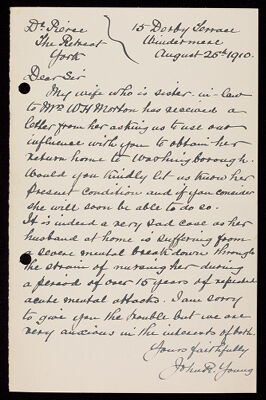 Dr Pierce
The Retreat
York
15 Derby Terrace
Windermere
August 25th 1910.
Dear Sir
My wife who is sister in law
to Mrs W H Morton has received a
letter from her asking us to use our
influence with you to obtain her
return home to Washingborough.
Would you kindly let us know her
present condition and if you consider
she will soon be able to do so.
It is indeed a very sad case as her
husband at home is suffering from
a severe mental breakdown through
the strain of nursing her during
a period of over 15 years of repeated
acute mental attacks. I am sorry
to give you the trouble but we are
very anxious in the interests of both.
Yours faithfully
John R. Young